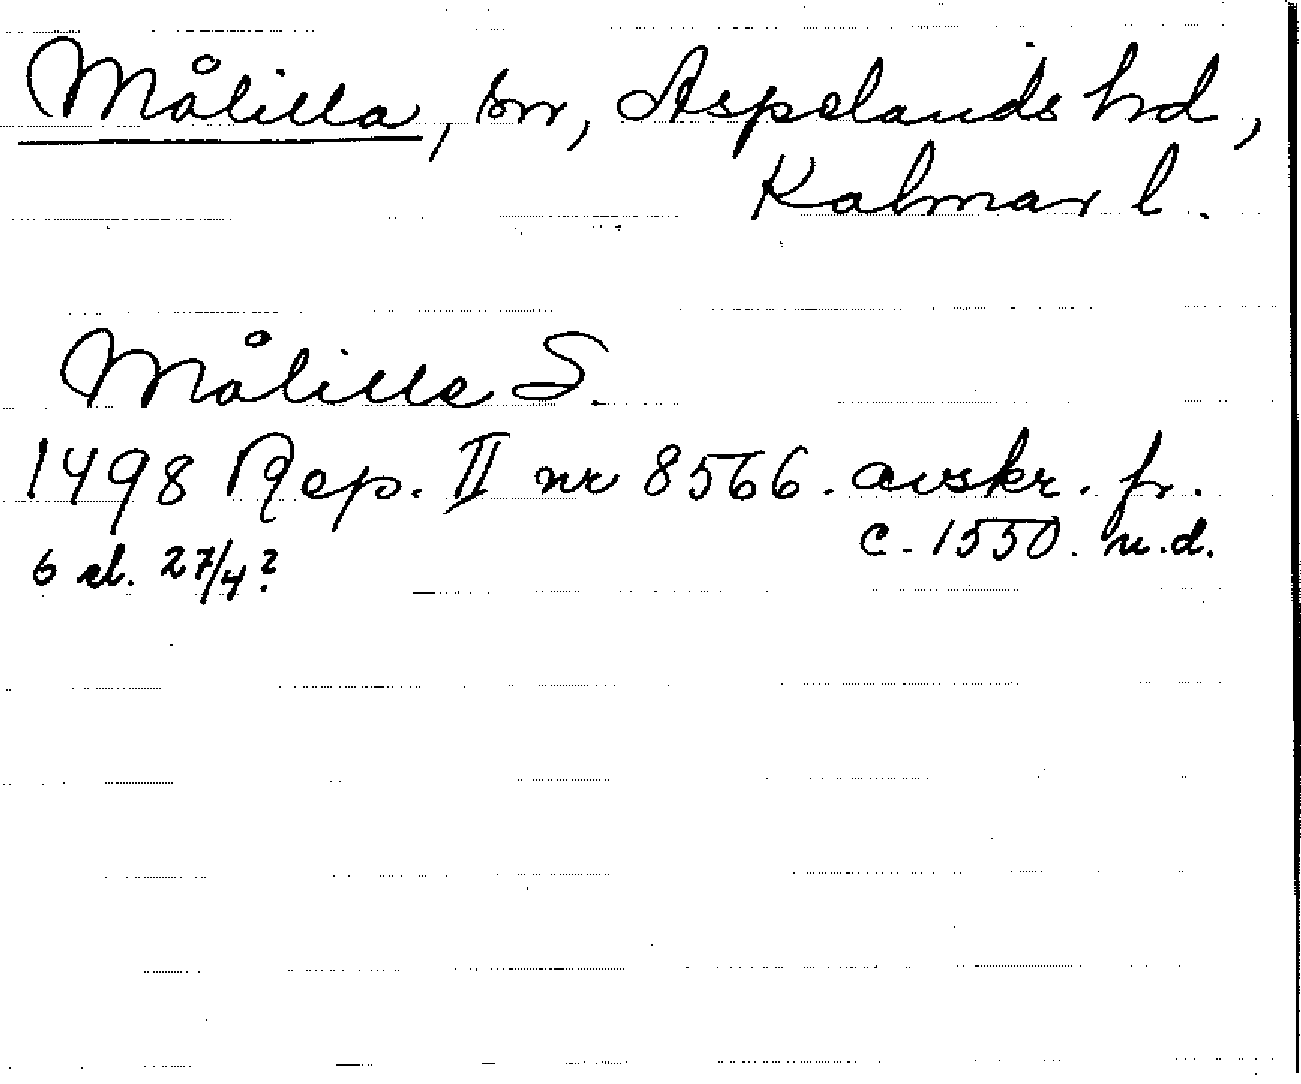 Målilla, sn, Aspelands hd,
Kalmar l.
Målilla S.
1498 Rep. II nr 8566. avskr. fr.
c. 1550. u.d.
6 el. 27/4?